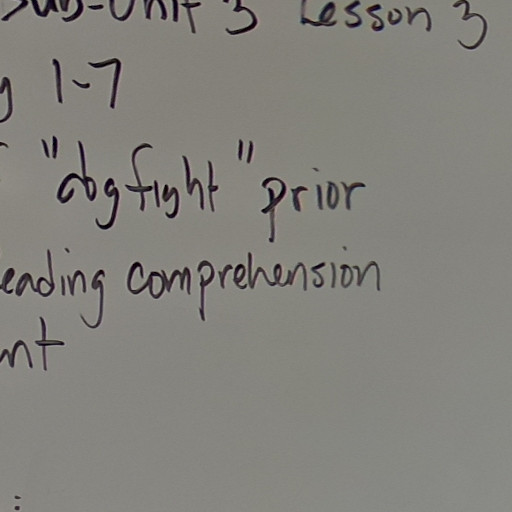 Sub-Unit 3 Lesson 3
1-7
"dogfight" prior
eading comprehension
nt
: